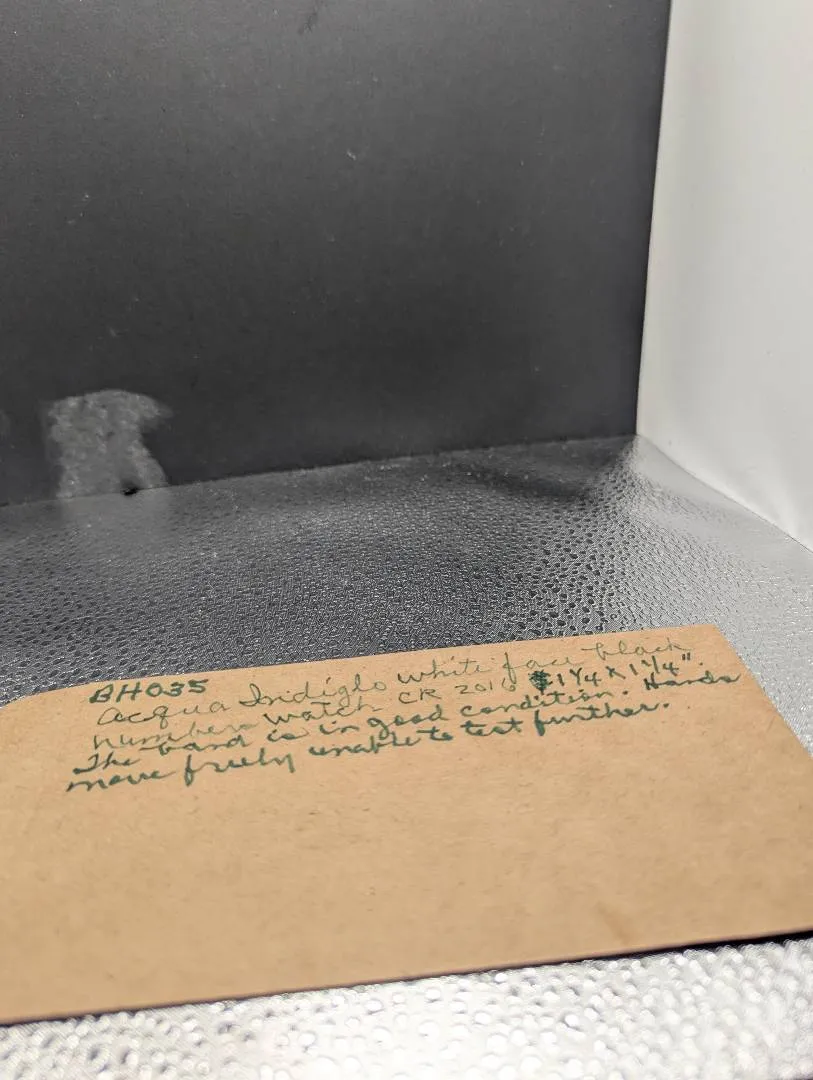 BH035
Acqua Indiglo white face black
number watch CR 2016 1 1/4 x 1 1/4".
The band is in good condition. Hands
move freely unable to test further.